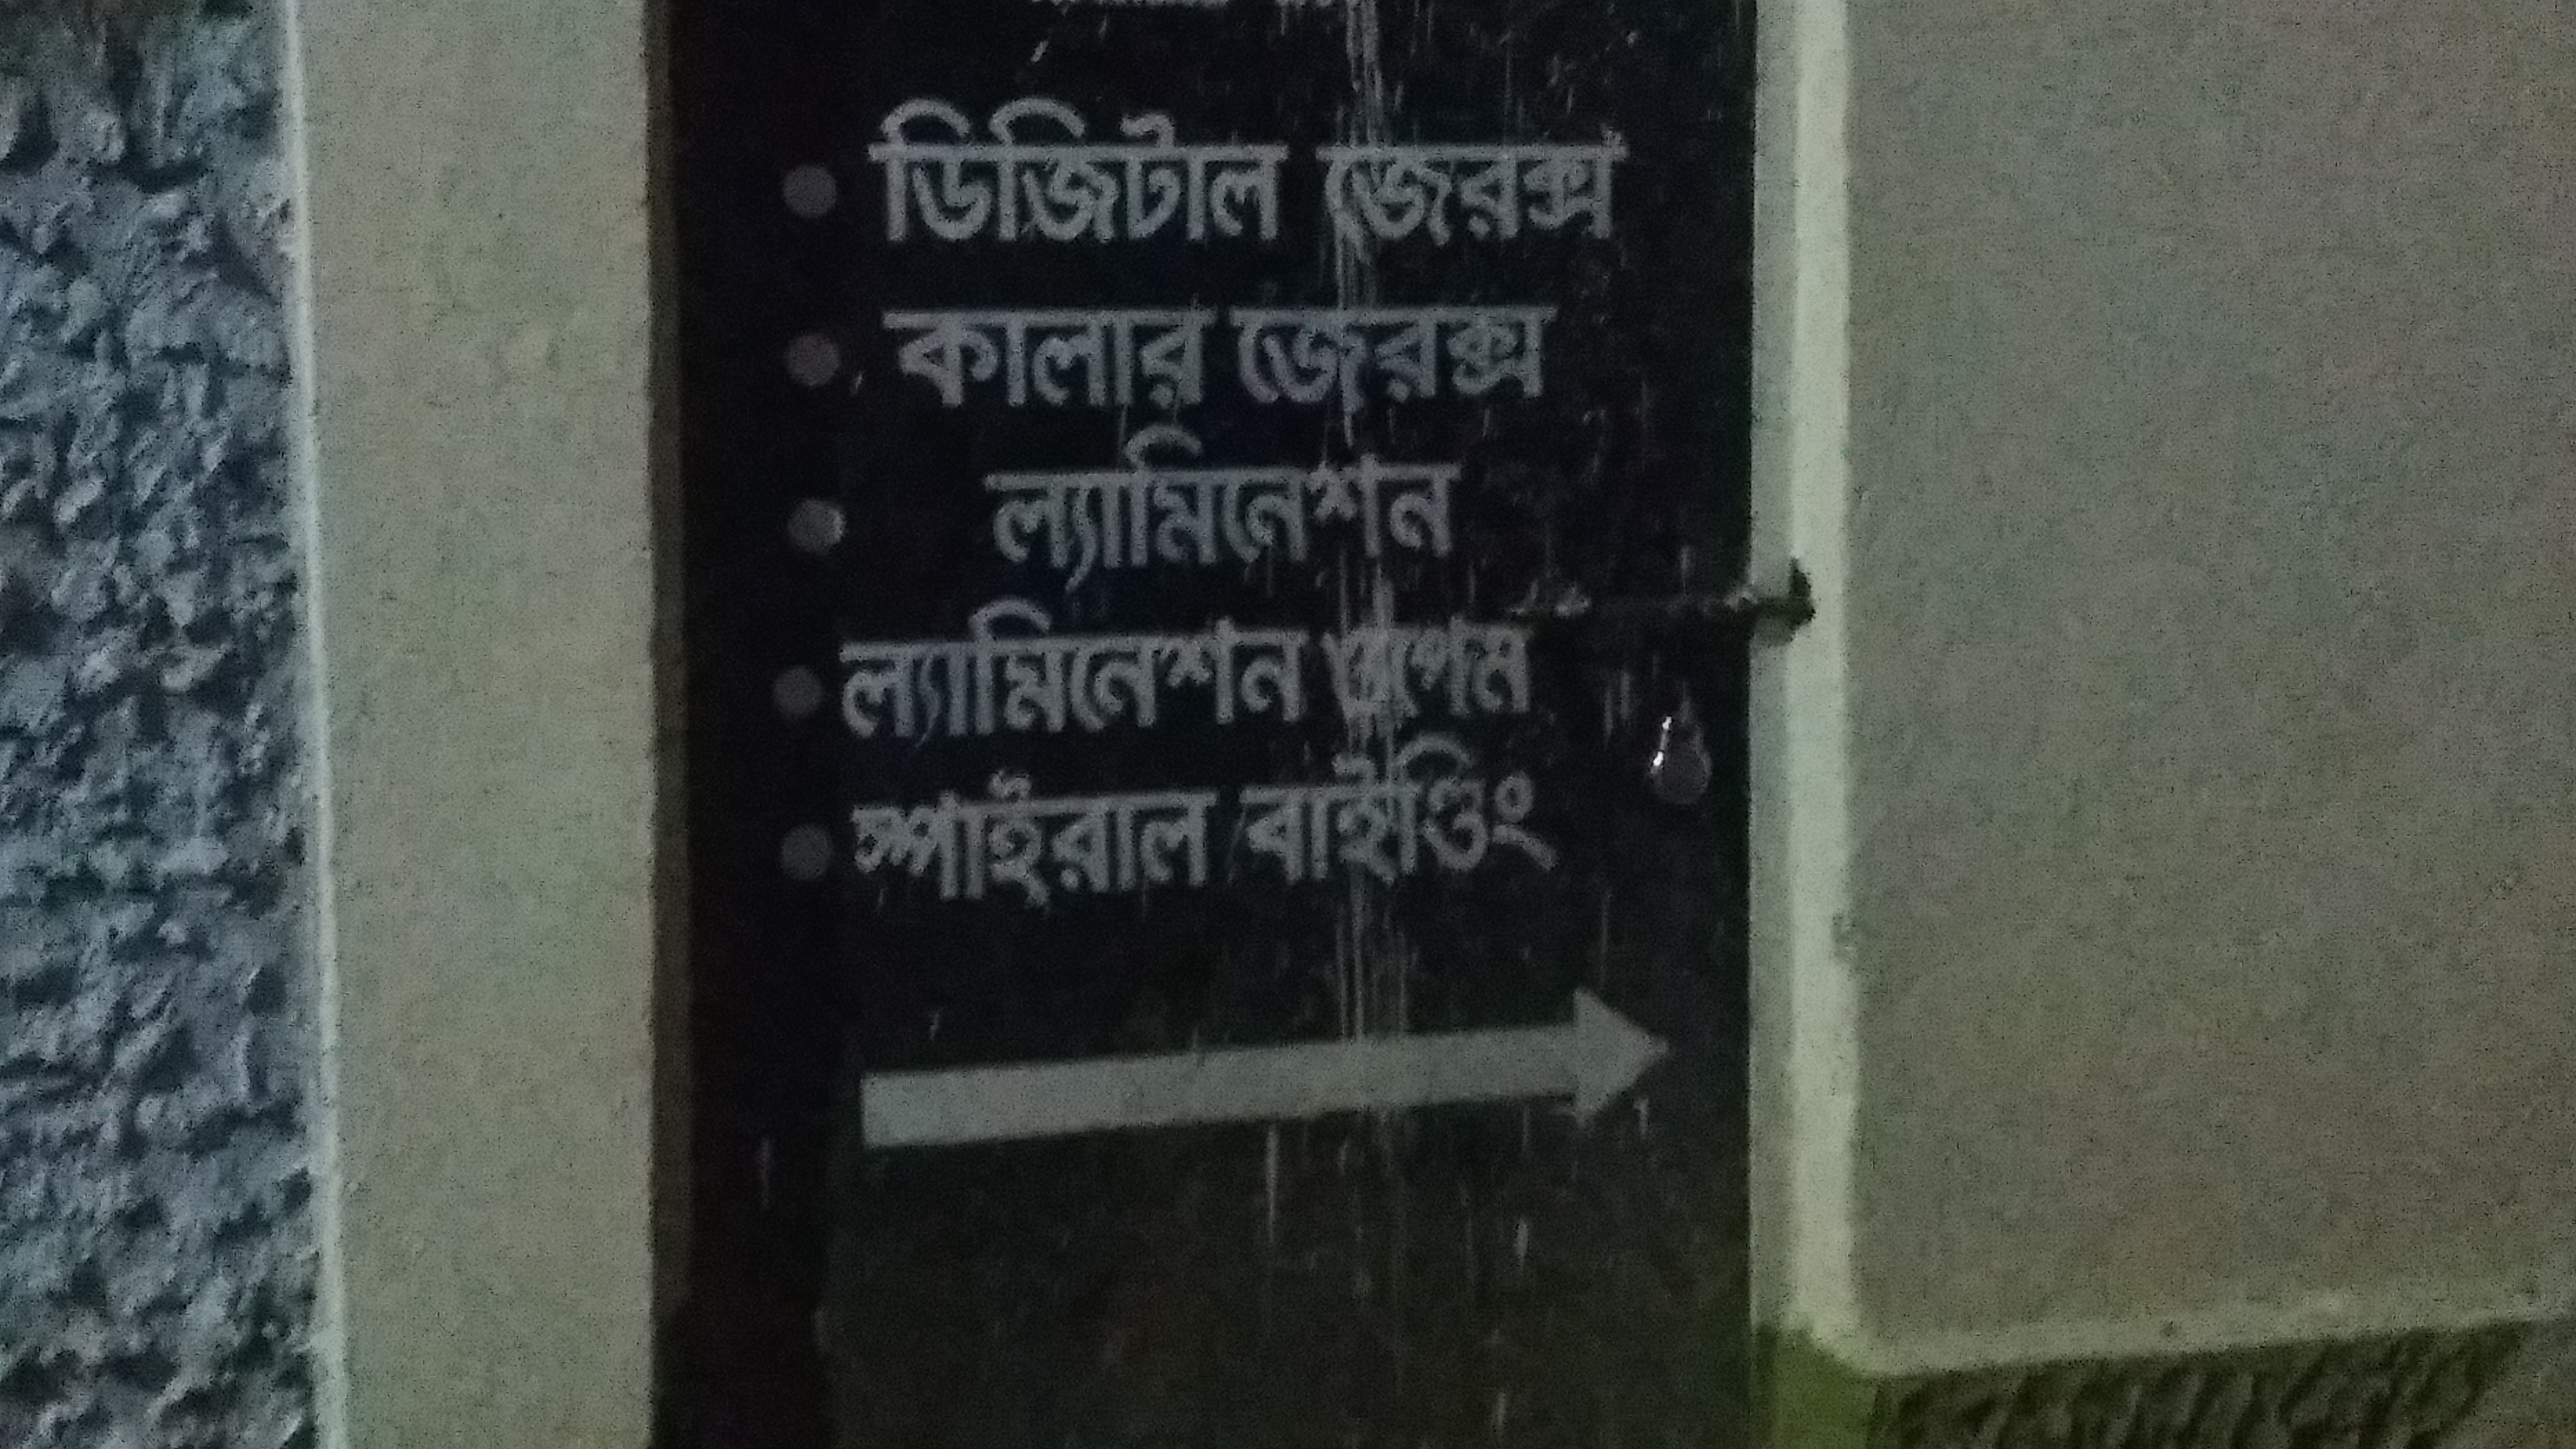 ডিজিটাল জেরক্স
কালার জেরক্স
ল্যামিনেশন
ল্যামিনেশন ওপেম
স্পাইরাল বাইণ্ডিং